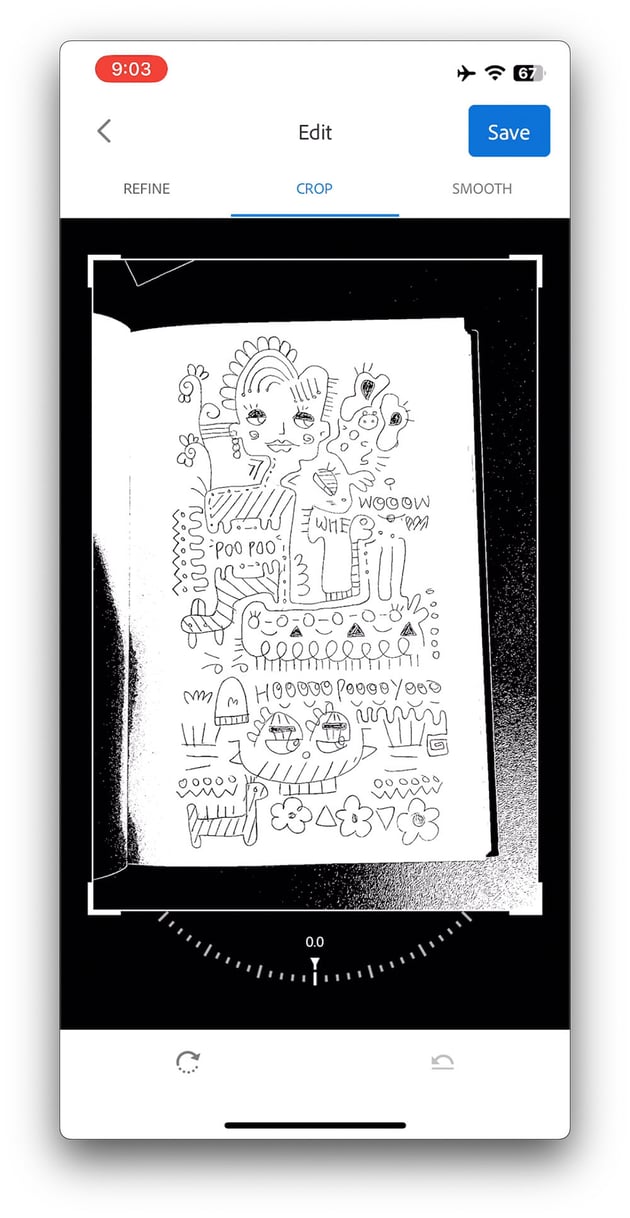 9:03
67
Edit
Save
REFINE
CROP
SMOOTH
WOOOW
WHE
POO POO
HOOOOO POOOO YOOO
0.0